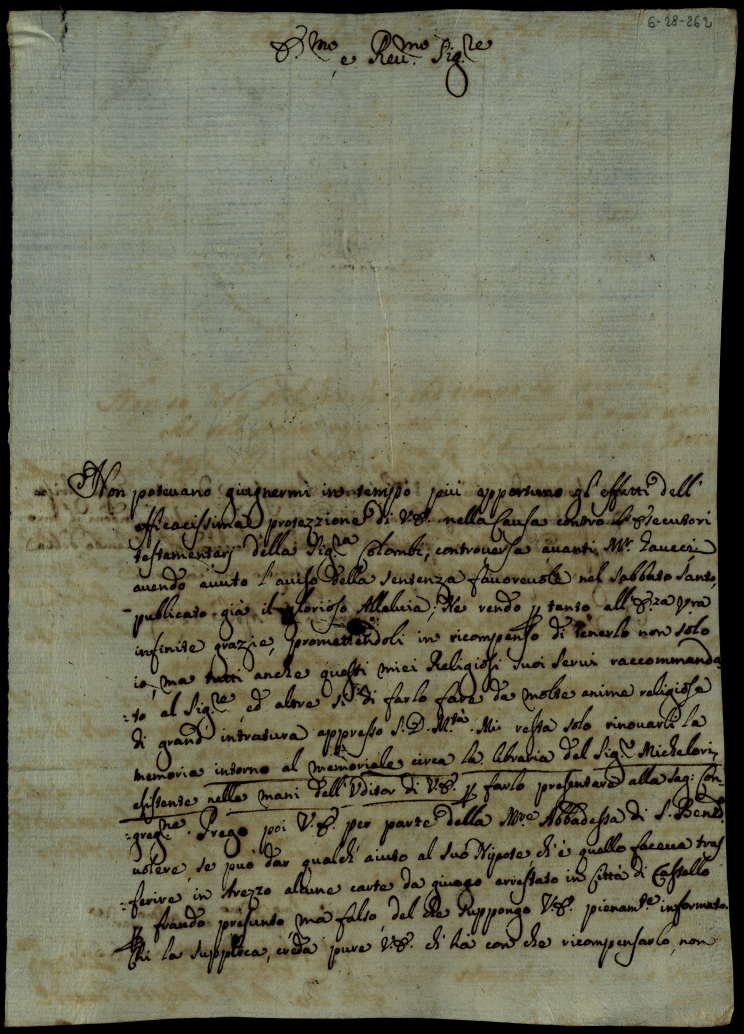 6-28-262
E.mo e Reu.mo Sig.re
Non poteuano giugnermi in tempo più opportuno gl'effetti dell'
efficacissima protezzione di V.E. nella Causa contro li Essecutori
testamentarj della Sig.ra Colombi, controuersa auanti M.r
auendo auuto l'auiso della sentenza fauoreuole nel Sabbato Santo,
publicato già il glorioso Alleluia; Ne rendo p tanto all'E.za Vra
infinite grazie, promettendoli in ricompenso di tenerlo non solo
io, ma tutti anche questi miei Religiosi suoi Serui raccommanda-
-to al Sig.re, ed altre sì di farlo fare da molte anime religiose
di grand' intratura appresso S.D.M.tà. Mi resta solo rinouarli la
memoria intorno al memoriale circa la libraria del Sig.r Michelori,
esistente nelle mani dell'Vditor di V.E. p farlo presentare alla Sag: Con-
-greg.ne. Prego poi V.E. per parte della M.re Abbadessa di S. Bened.
uolere, se può dar qualch' aiuto al suo Nipote, ch'è quello faceua tras
-ferire in Arezo alcune carte da giuogo arrestato in Città di Castello
p fraudo presunto mà falso, del che suppongo V.E. pienam.te informato.
Chi la supplica, creda pure V.E. ch'hà con che ricompensarlo, non